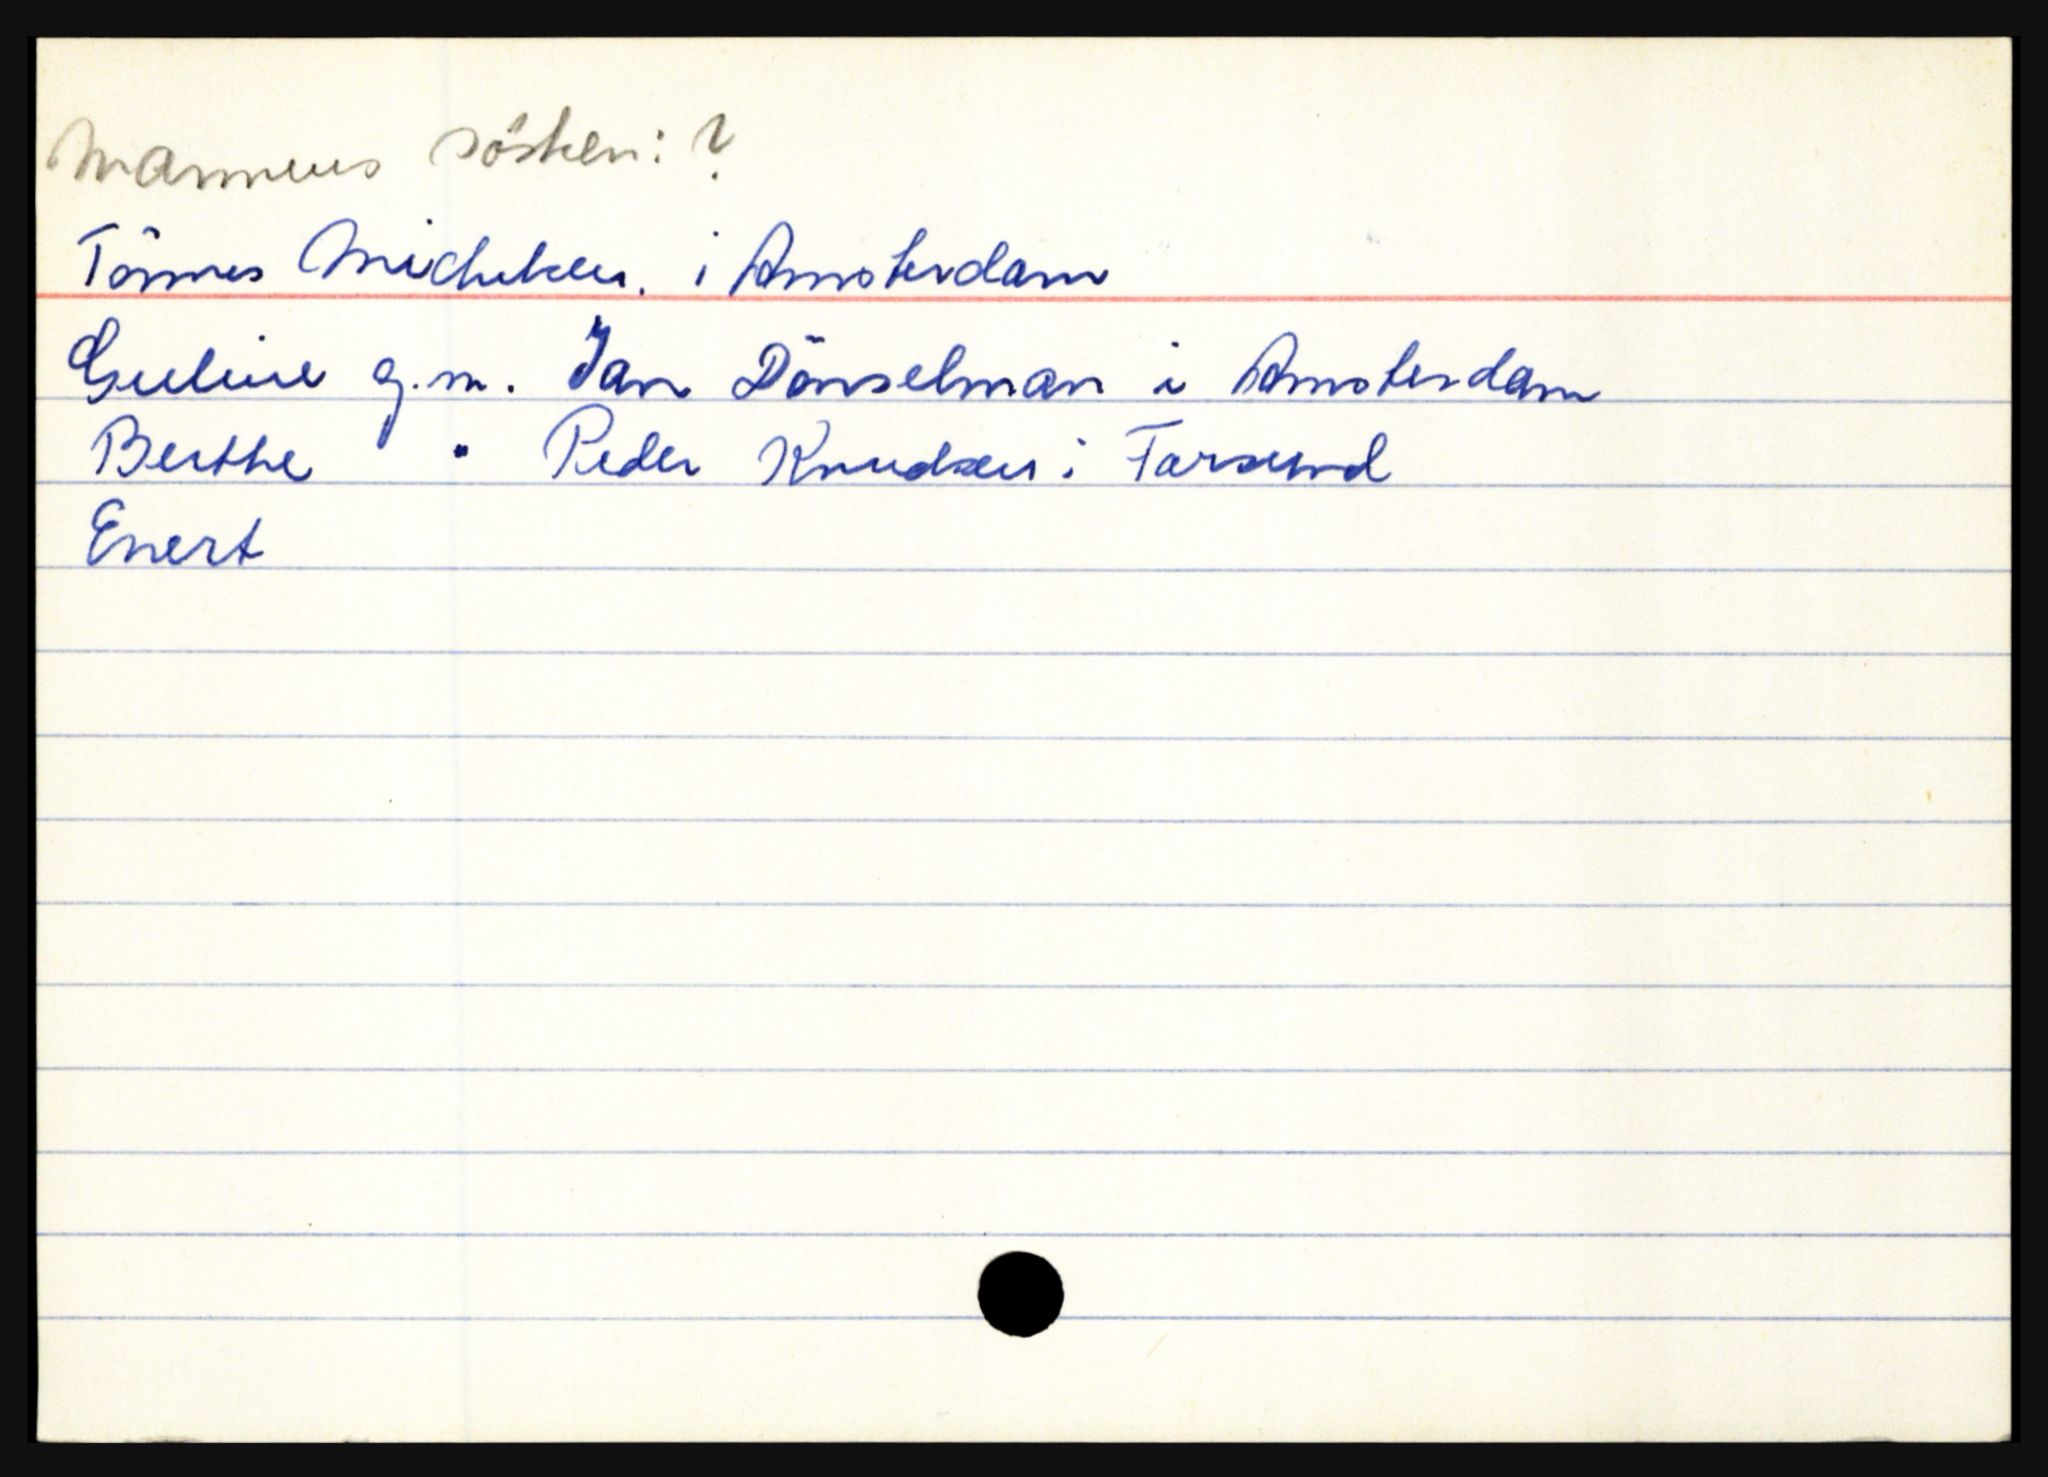 Mannens sösken: ?
Tönnes Michelsen. i Amsterdam
Guline g.m. Jan Dönselman i Amsterdam
Berthe " Peder Knudsen i Farsund
Enert